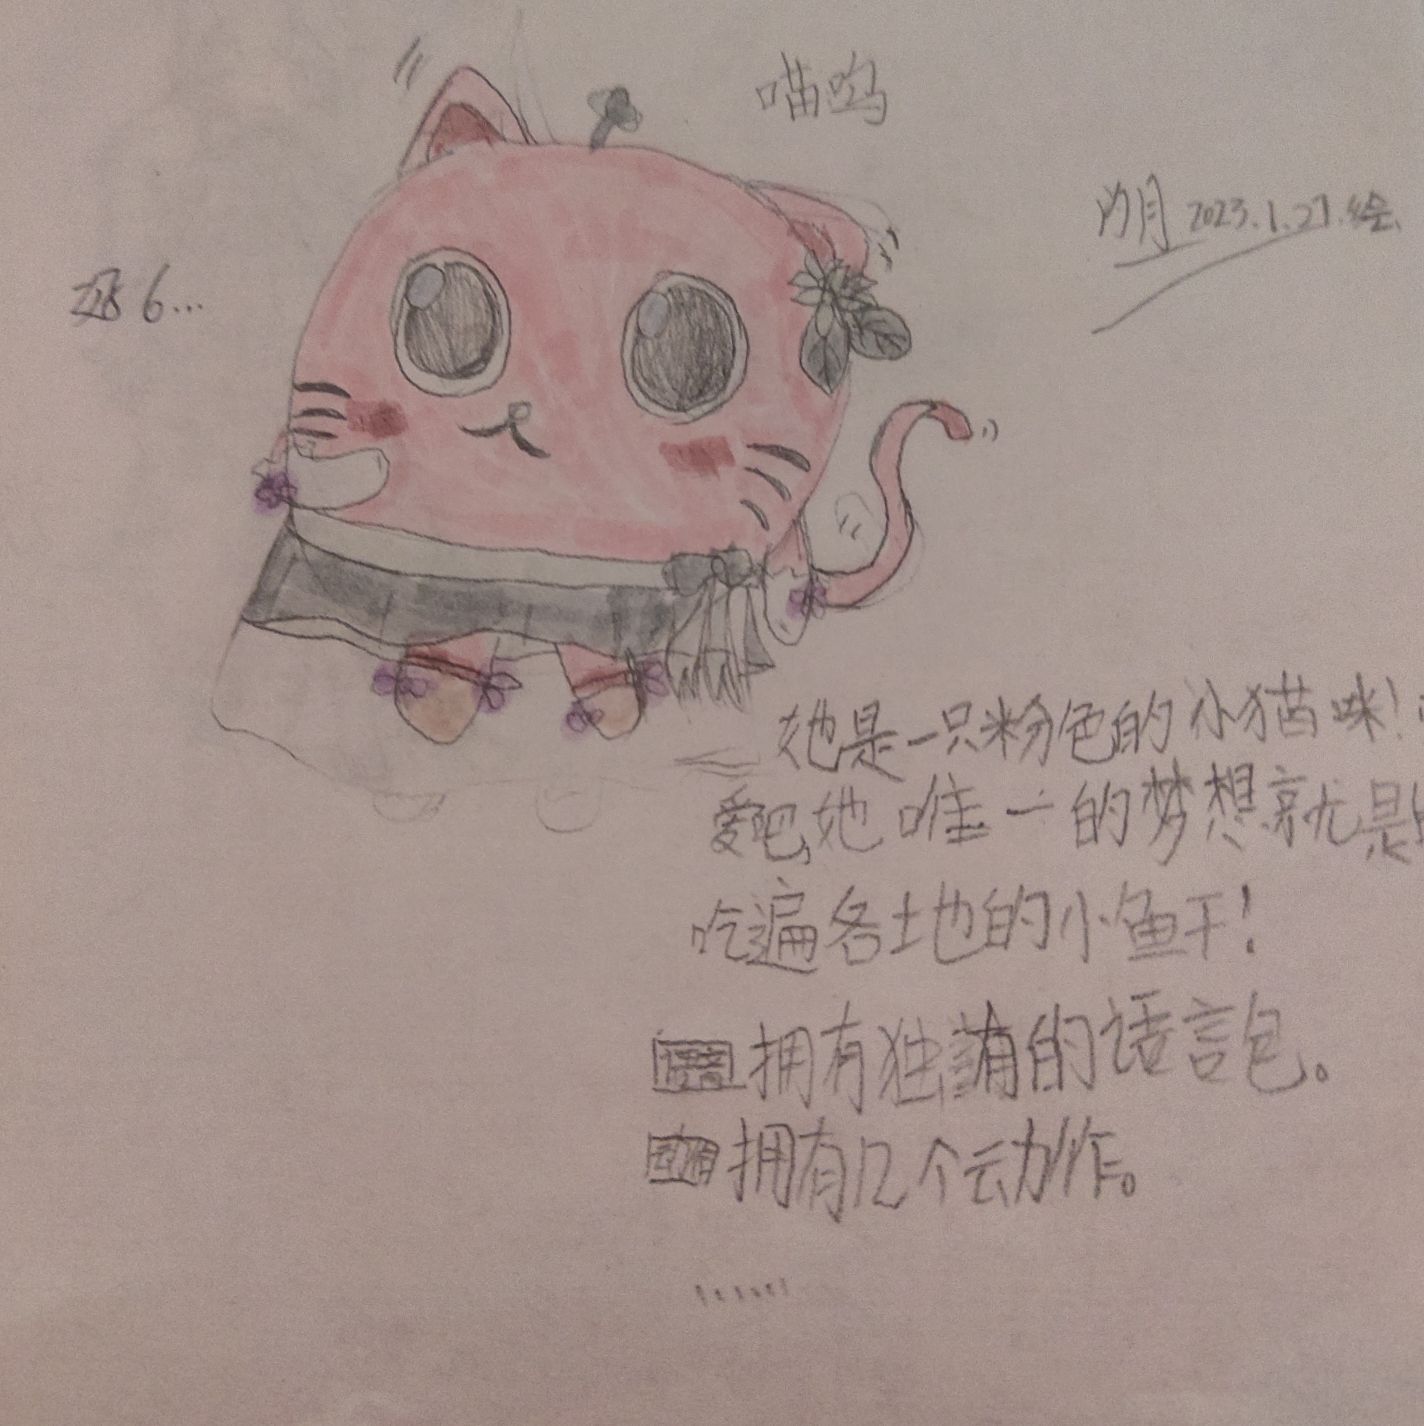 喵呜
2023.1.27.绘
6...
她是一只粉色的小猫咪!
爱吧,她唯一的梦想就是
吃遍各地的小鱼干!
语言 拥有独有的话言包。
拥有几个动作。